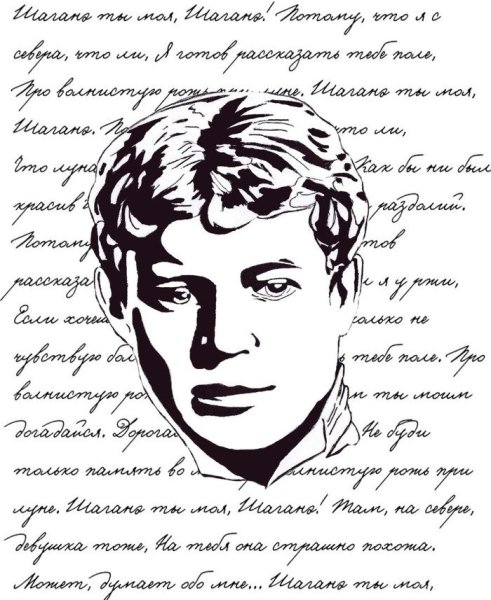 Шаганэ ты моя, Шаганэ! Потому, что я с
севера, что ли, Я готов рассказать тебе поле,
Про волнистую рожь при луне. Шаганэ ты моя,
Шаганэ. По что ли,
Что луна Как бы ни был
красив раздолий.
Потому тов
рассказа и я у ржи,
Если хочеш олько не
чувствую бол тебе поле. Про
волнистую ро ты моим
догадайся. Дорогая Не буди
только память во лнистую рожь при
луне. Шаганэ ты моя, Шаганэ! Там, на севере,
девушка тоже, На тебя она страшно похожа.
Может, думает обо мне... Шаганэ ты моя,